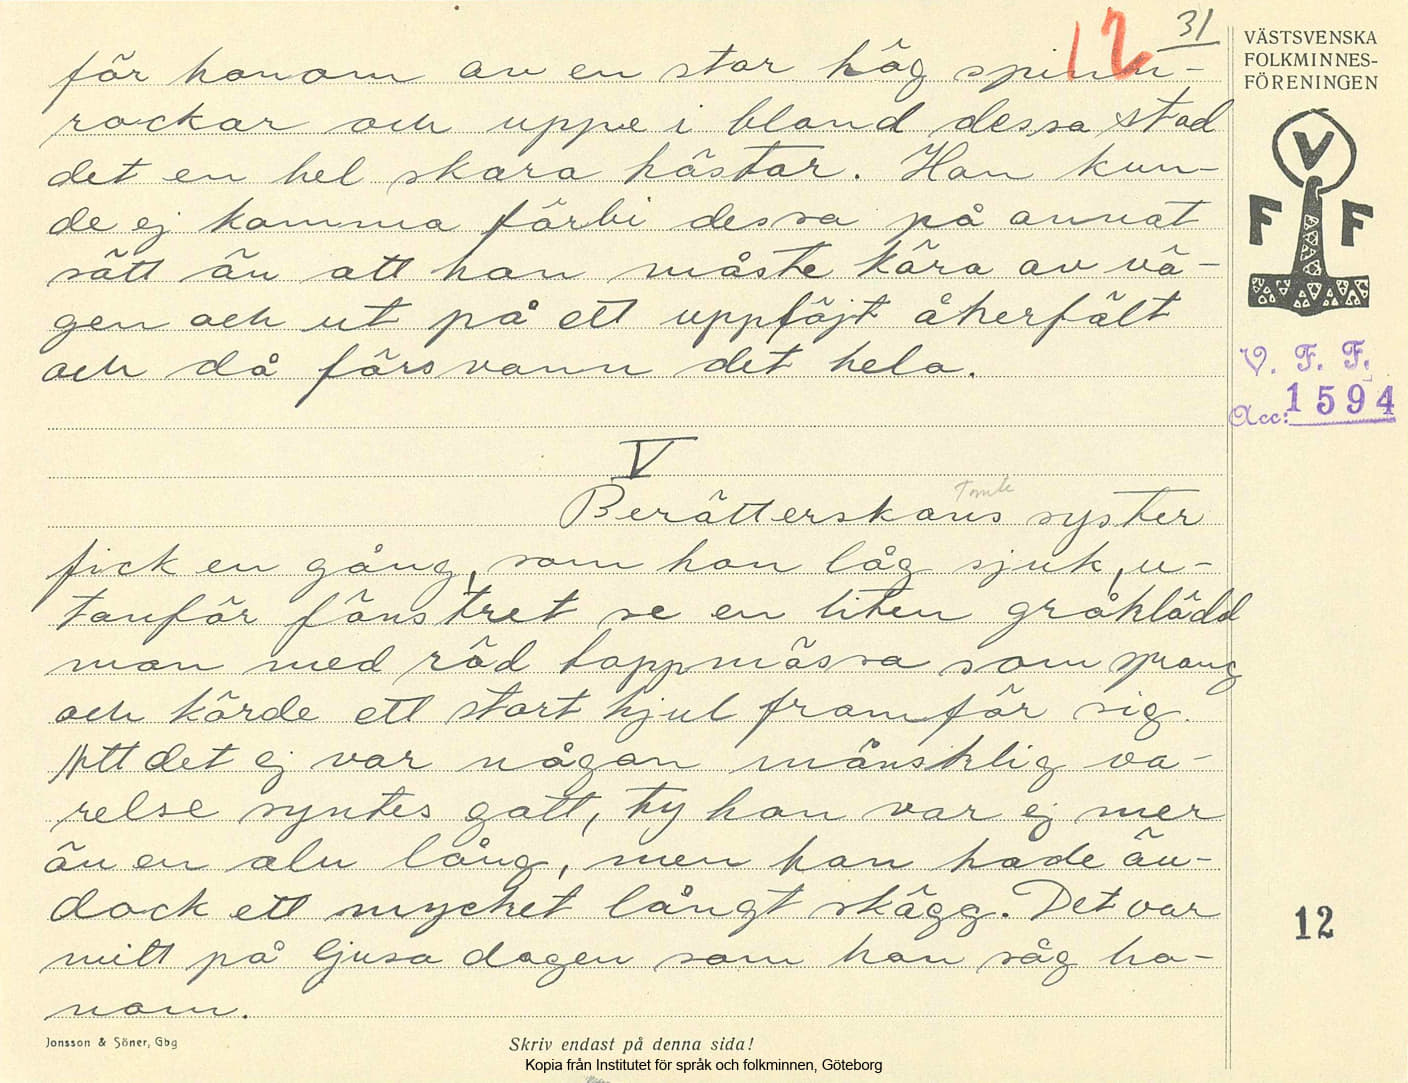 12 31
för honom av en stor hög spinn-
rockar och uppe i bland dessa stod
det en hel skara hästar. Han kun-
de ej komma förbi dessa på annat
sätt än att han måste köra av vä-
gen och ut på ett uppföjt åkerfält
och då försvann det hela.
V
Tomte
Berätterskans syster
fick en gång, som hon låg sjuk, u-
tanför fönstret se en liten gråklädd
man med röd toppmössa som sprang
och körde ett stort hjul framför sig.
Att det ej var någon mänsklig va-
relse syntes gott, ty han var ej mer
än en aln lång, men han hade än-
dock ett mycket långt skägg. Det var
mitt på ljusa dagen som hon såg ho-
nom.
VÄSTSVENSKA
FOLKMINNES-
FÖRENINGEN
V
F F
V. F. F.
Acc: 1594
12
Jonsson & Söner, Gbg
Skriv endast på denna sida!
Kopia från Institutet för språk och folkminnen, Göteborg